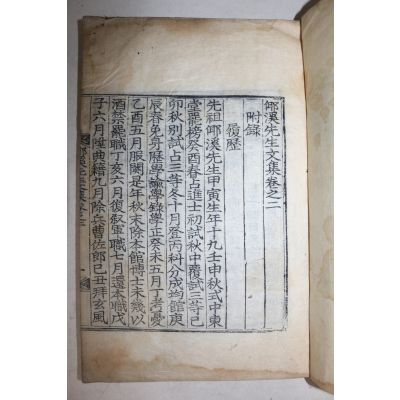 倻溪先生文集卷之二
附錄
履歷
先祖倻溪先生甲寅生年十九壬申秋式中東
堂罷榜癸酉春占進士初試秋中覆試三等己
卯秋別試占三等冬十月登丙科分成均館庚
辰春免身歷學諭學錄學正癸未五月丁考憂
乙酉五月服闋是年秋末除本館博士未幾以
酒禁罷職丁亥六月復敘軍職七月還本職戊
子六月陞典籍九月除兵曹佐郎己丑拜玄風